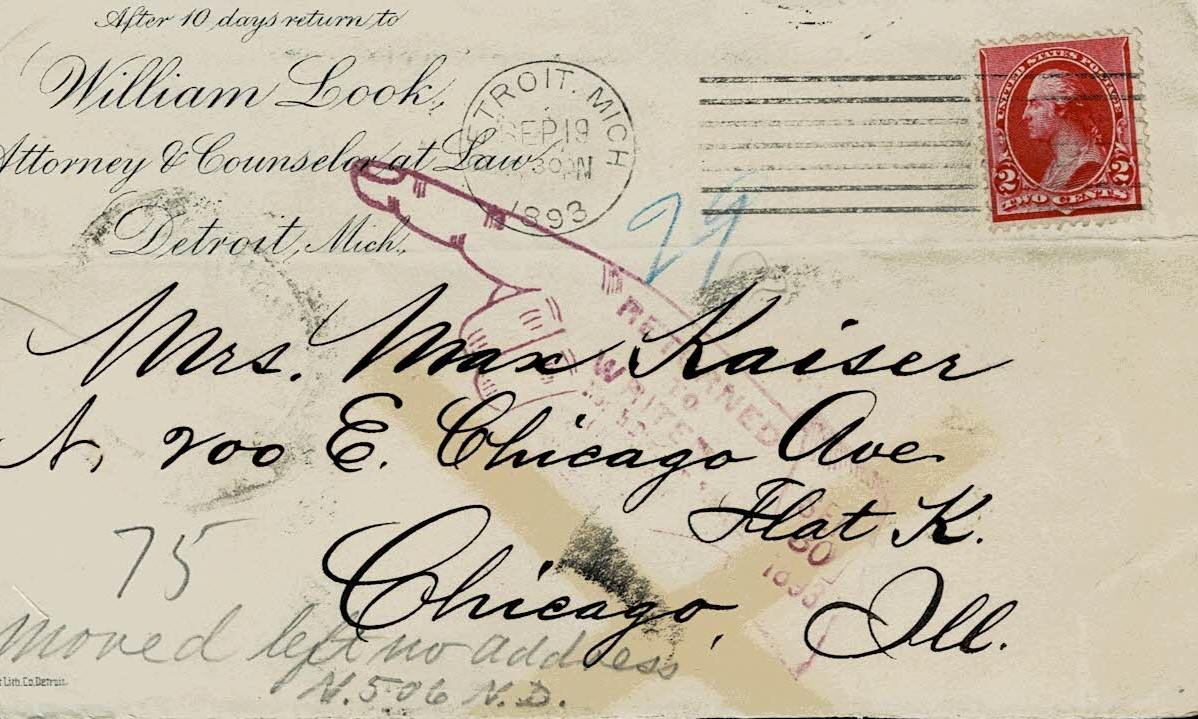 After 10 days return to
William Look,
Attorney & Counselor at Law
Detroit, Mich.
DETROIT. MICH
SEP 19
30PM
1893
UNITED STATES POSTAGE
2 2
TWO CENTS
29
RETURNED
TO
WRITER
Mrs. Max Kaiser
N, 200 E. Chicago Ave.
Flat K.
Chicago, Ill.
30
1893
75
Moved left no address
N. 506 N.D.
Lith. Co. Detroit.